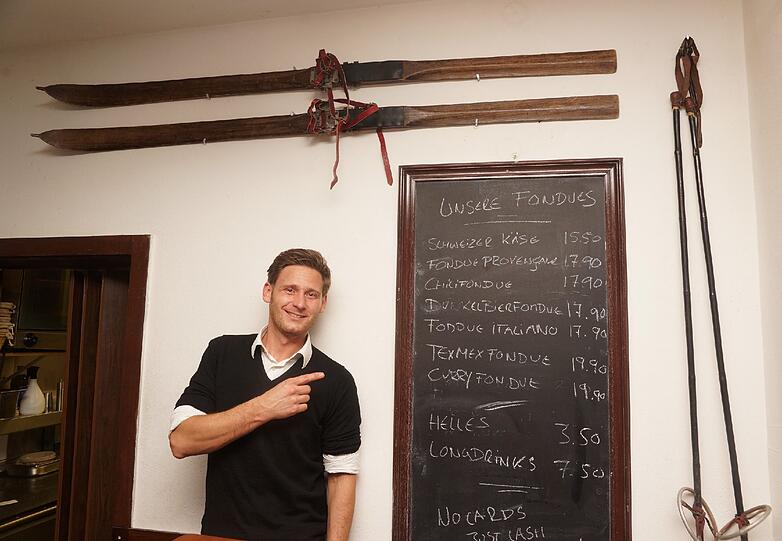 UNSERE FONDUES
SCHWEIZER KÄSE 15.50
FONDUE PROVENÇALE 17.90
CHILIFONDUE 17.90
DUNKELBIERFONDUE 17.90
FODDUE ITALIANO 17.90
TEXMEX FONDUE 19.90
CURRY FONDUE 19.90
HELLES 3.50
LONGDRINKS 7.50
NO CARDS
JUST CASH